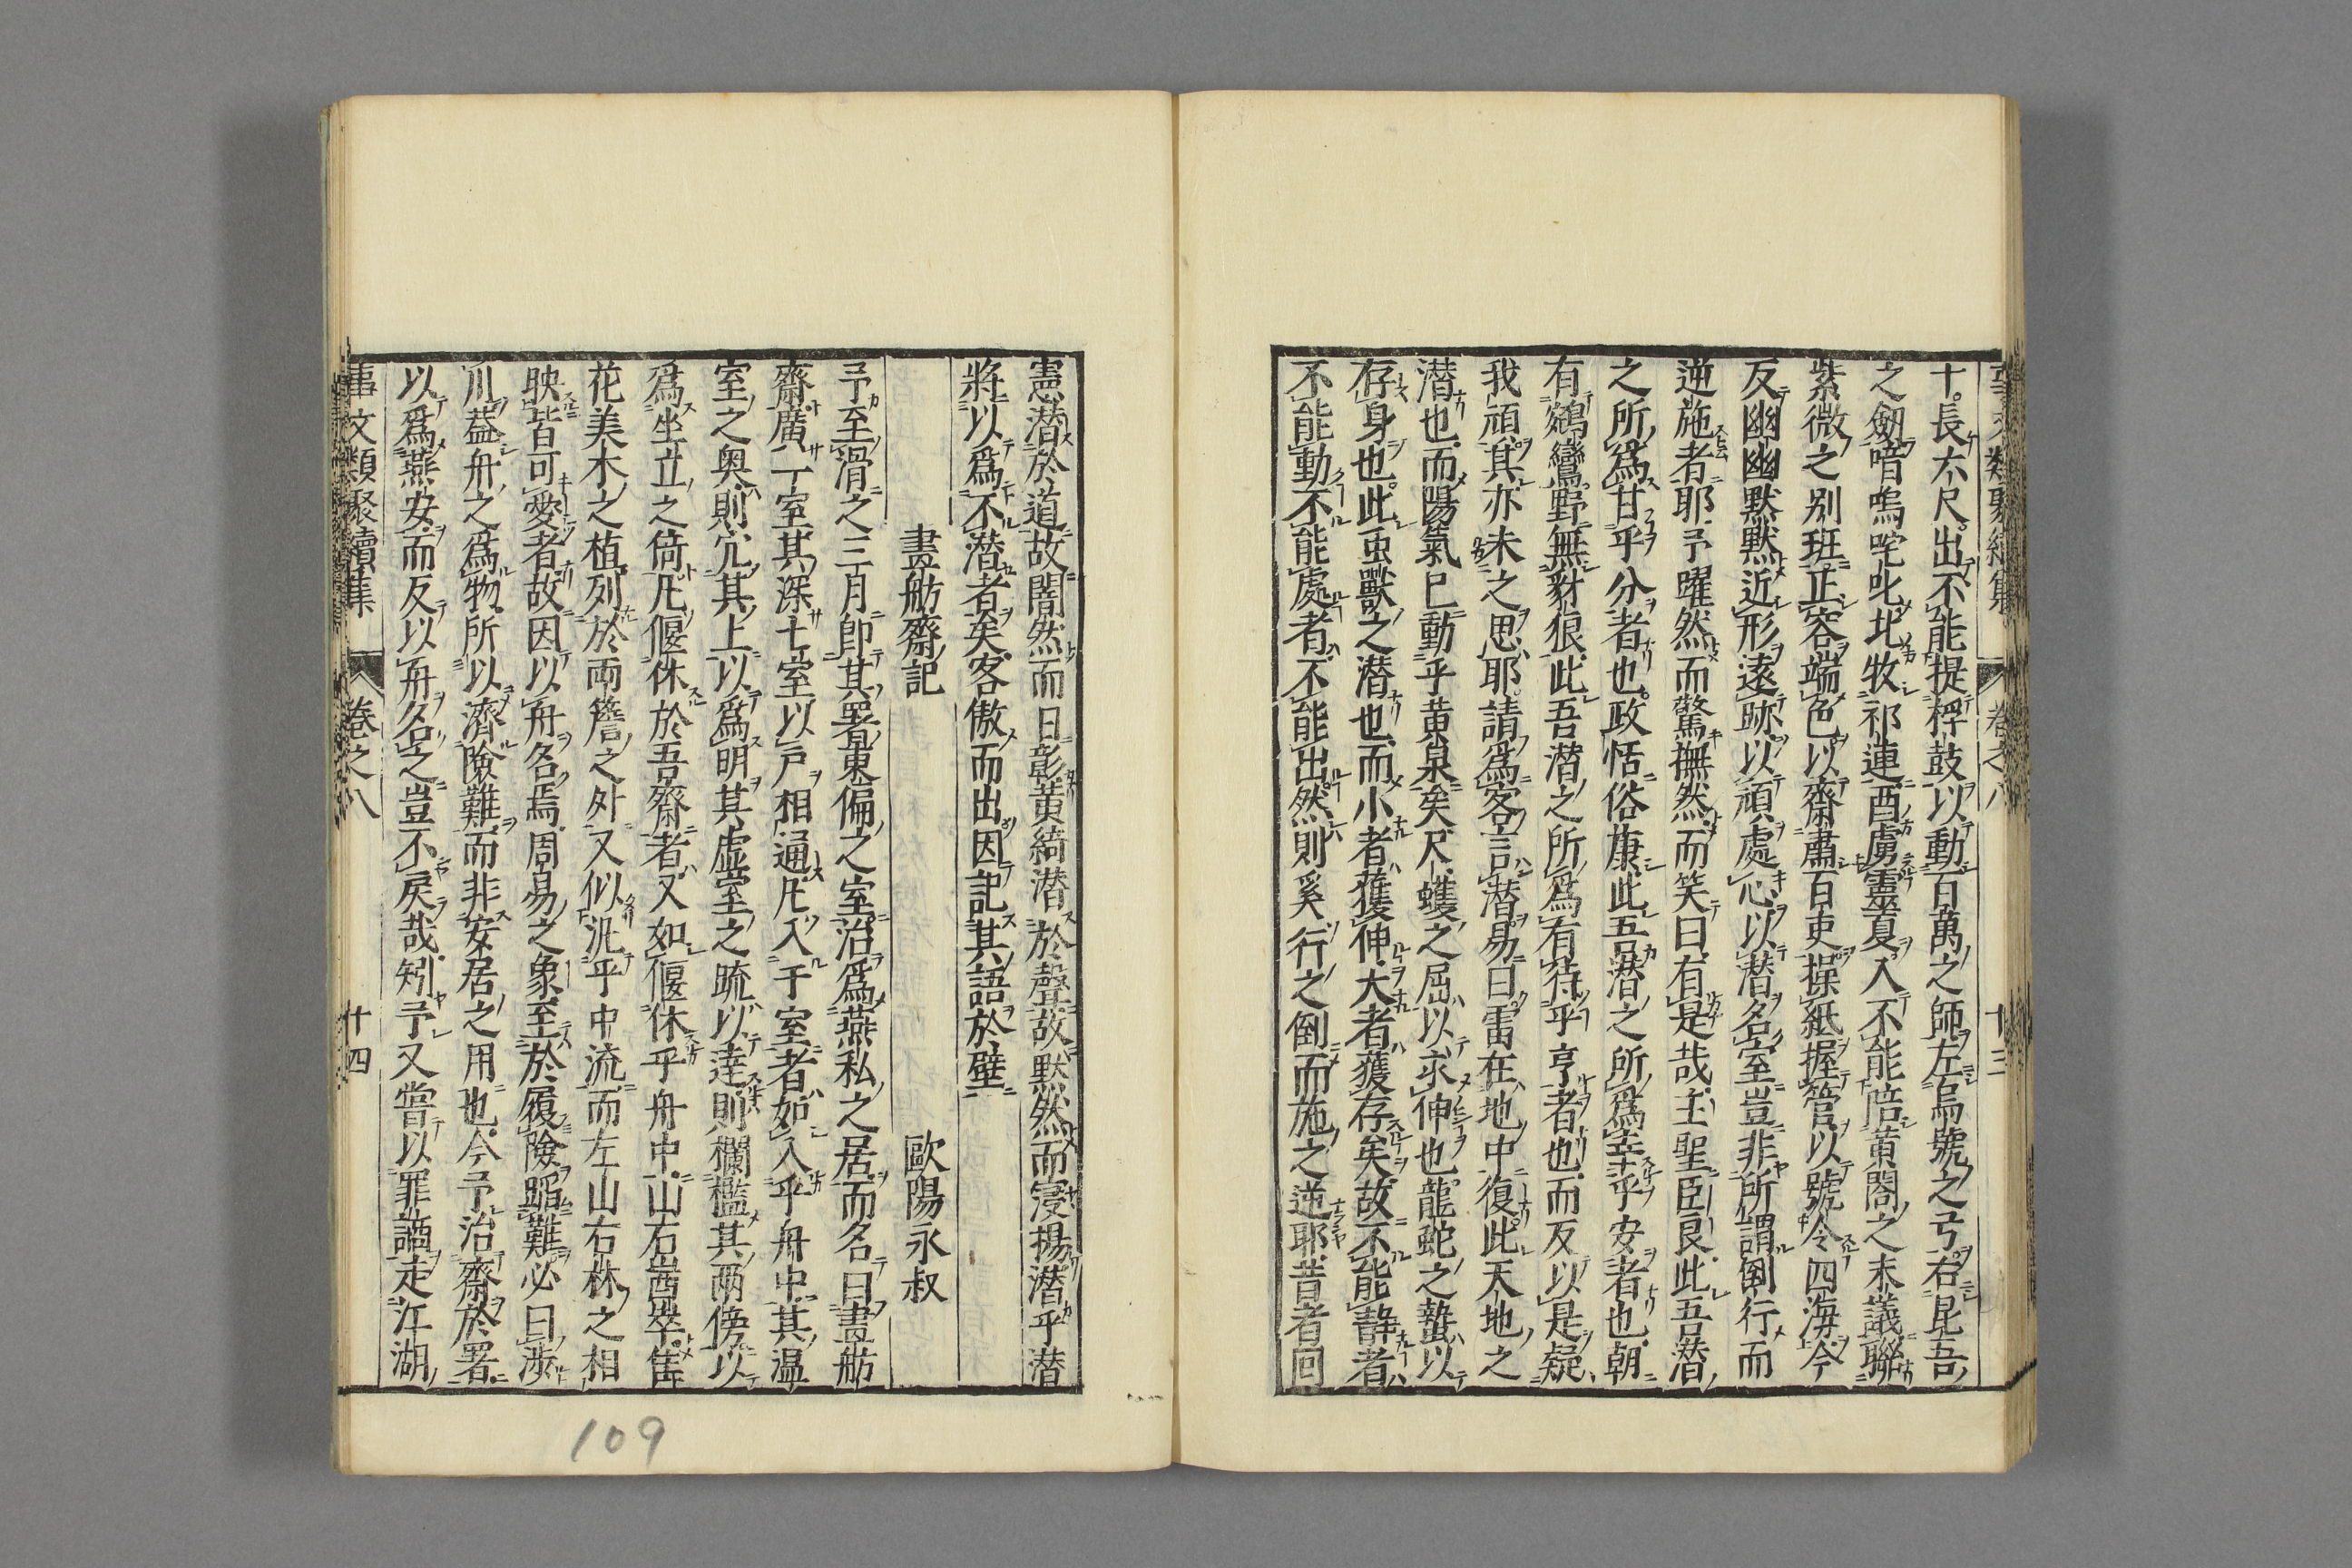 事文類聚續集 卷之八 十三
十長六尺出不能提桴鼓以動百萬之師左烏號之弓右昆吾
之劒喑嗚咤叱北牧祁連酉虜靈夏入不能陪黃閤之末議聯
紫微之別班正容端色以齋肅百吏操紙握管以號令四海今
反幽幽默默近形遠跡以頑處心以潜名室豈非所謂倒行而
逆施者耶予躍然而驚撫然而笑曰有是哉主聖臣良此吾潜
之所爲甘乎分者也政恬俗康此吾潜之所爲幸乎安者也朝
有鵷鸞野無豺狼此吾潜之所爲有待乎亨者也而反以是疑
我頑其亦未之思耶請爲客言潜易曰雷在地中復此天地之
潜也而陽氣已動乎黄泉矣尺蠖之屈以求伸也龍蛇之蟄以
存身也此虫獸之潜也而小者獲伸大者獲存矣故不能靜者
不能動不能處者不能出然則奚行之倒而施之逆耶昔者回
憲潜於道故闇然而日彰黄綺潜於聲故默然而寖揚潜乎潜
將以爲不潜者矣客傲而出因記其語於壁
畫舫齋記 歐陽永叔
予至滑之三月卽其署東偏之室治爲燕私之居而名曰畫舫
齋廣一室其深七室以戶相通凡入于室者如入乎舟中其溫
室之奥則穴其上以爲明其虚室之疏以達則欄檻其兩傍以
爲坐立之倚凡偃休於吾齋者又如偃休乎舟中山石崷崒隹
花美木之植列於兩簷之外又似汎乎中流而左山右林之相
映皆可愛者故因以舟名焉周易之象至於履險蹈難必曰涉
川葢舟之爲物所以濟險難而非安居之用也今予治齋於署
以爲燕安而反以舟名之豈不戾哉矧予又嘗以罪謫走江湖
事文類聚續集 卷之八 十四
109